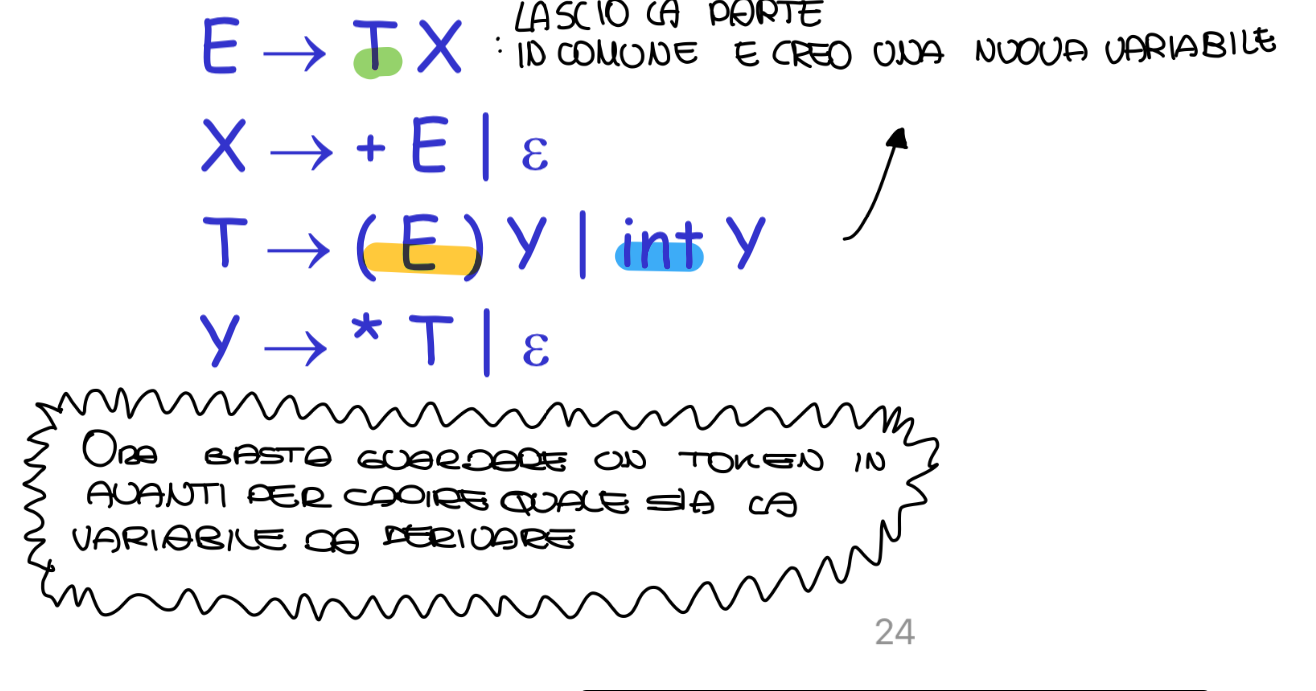 LASCIO LA PARTE
E → T X : IN COMUNE E CREO UNA NUOVA VARIABILE
X → + E | ε
T → ( E ) Y | int Y
Y → * T | ε
ORA BASTA GUARDARE UN TOKEN IN
AVANTI PER CAPIRE QUALE SIA LA
VARIABILE DA DERIVARE
24